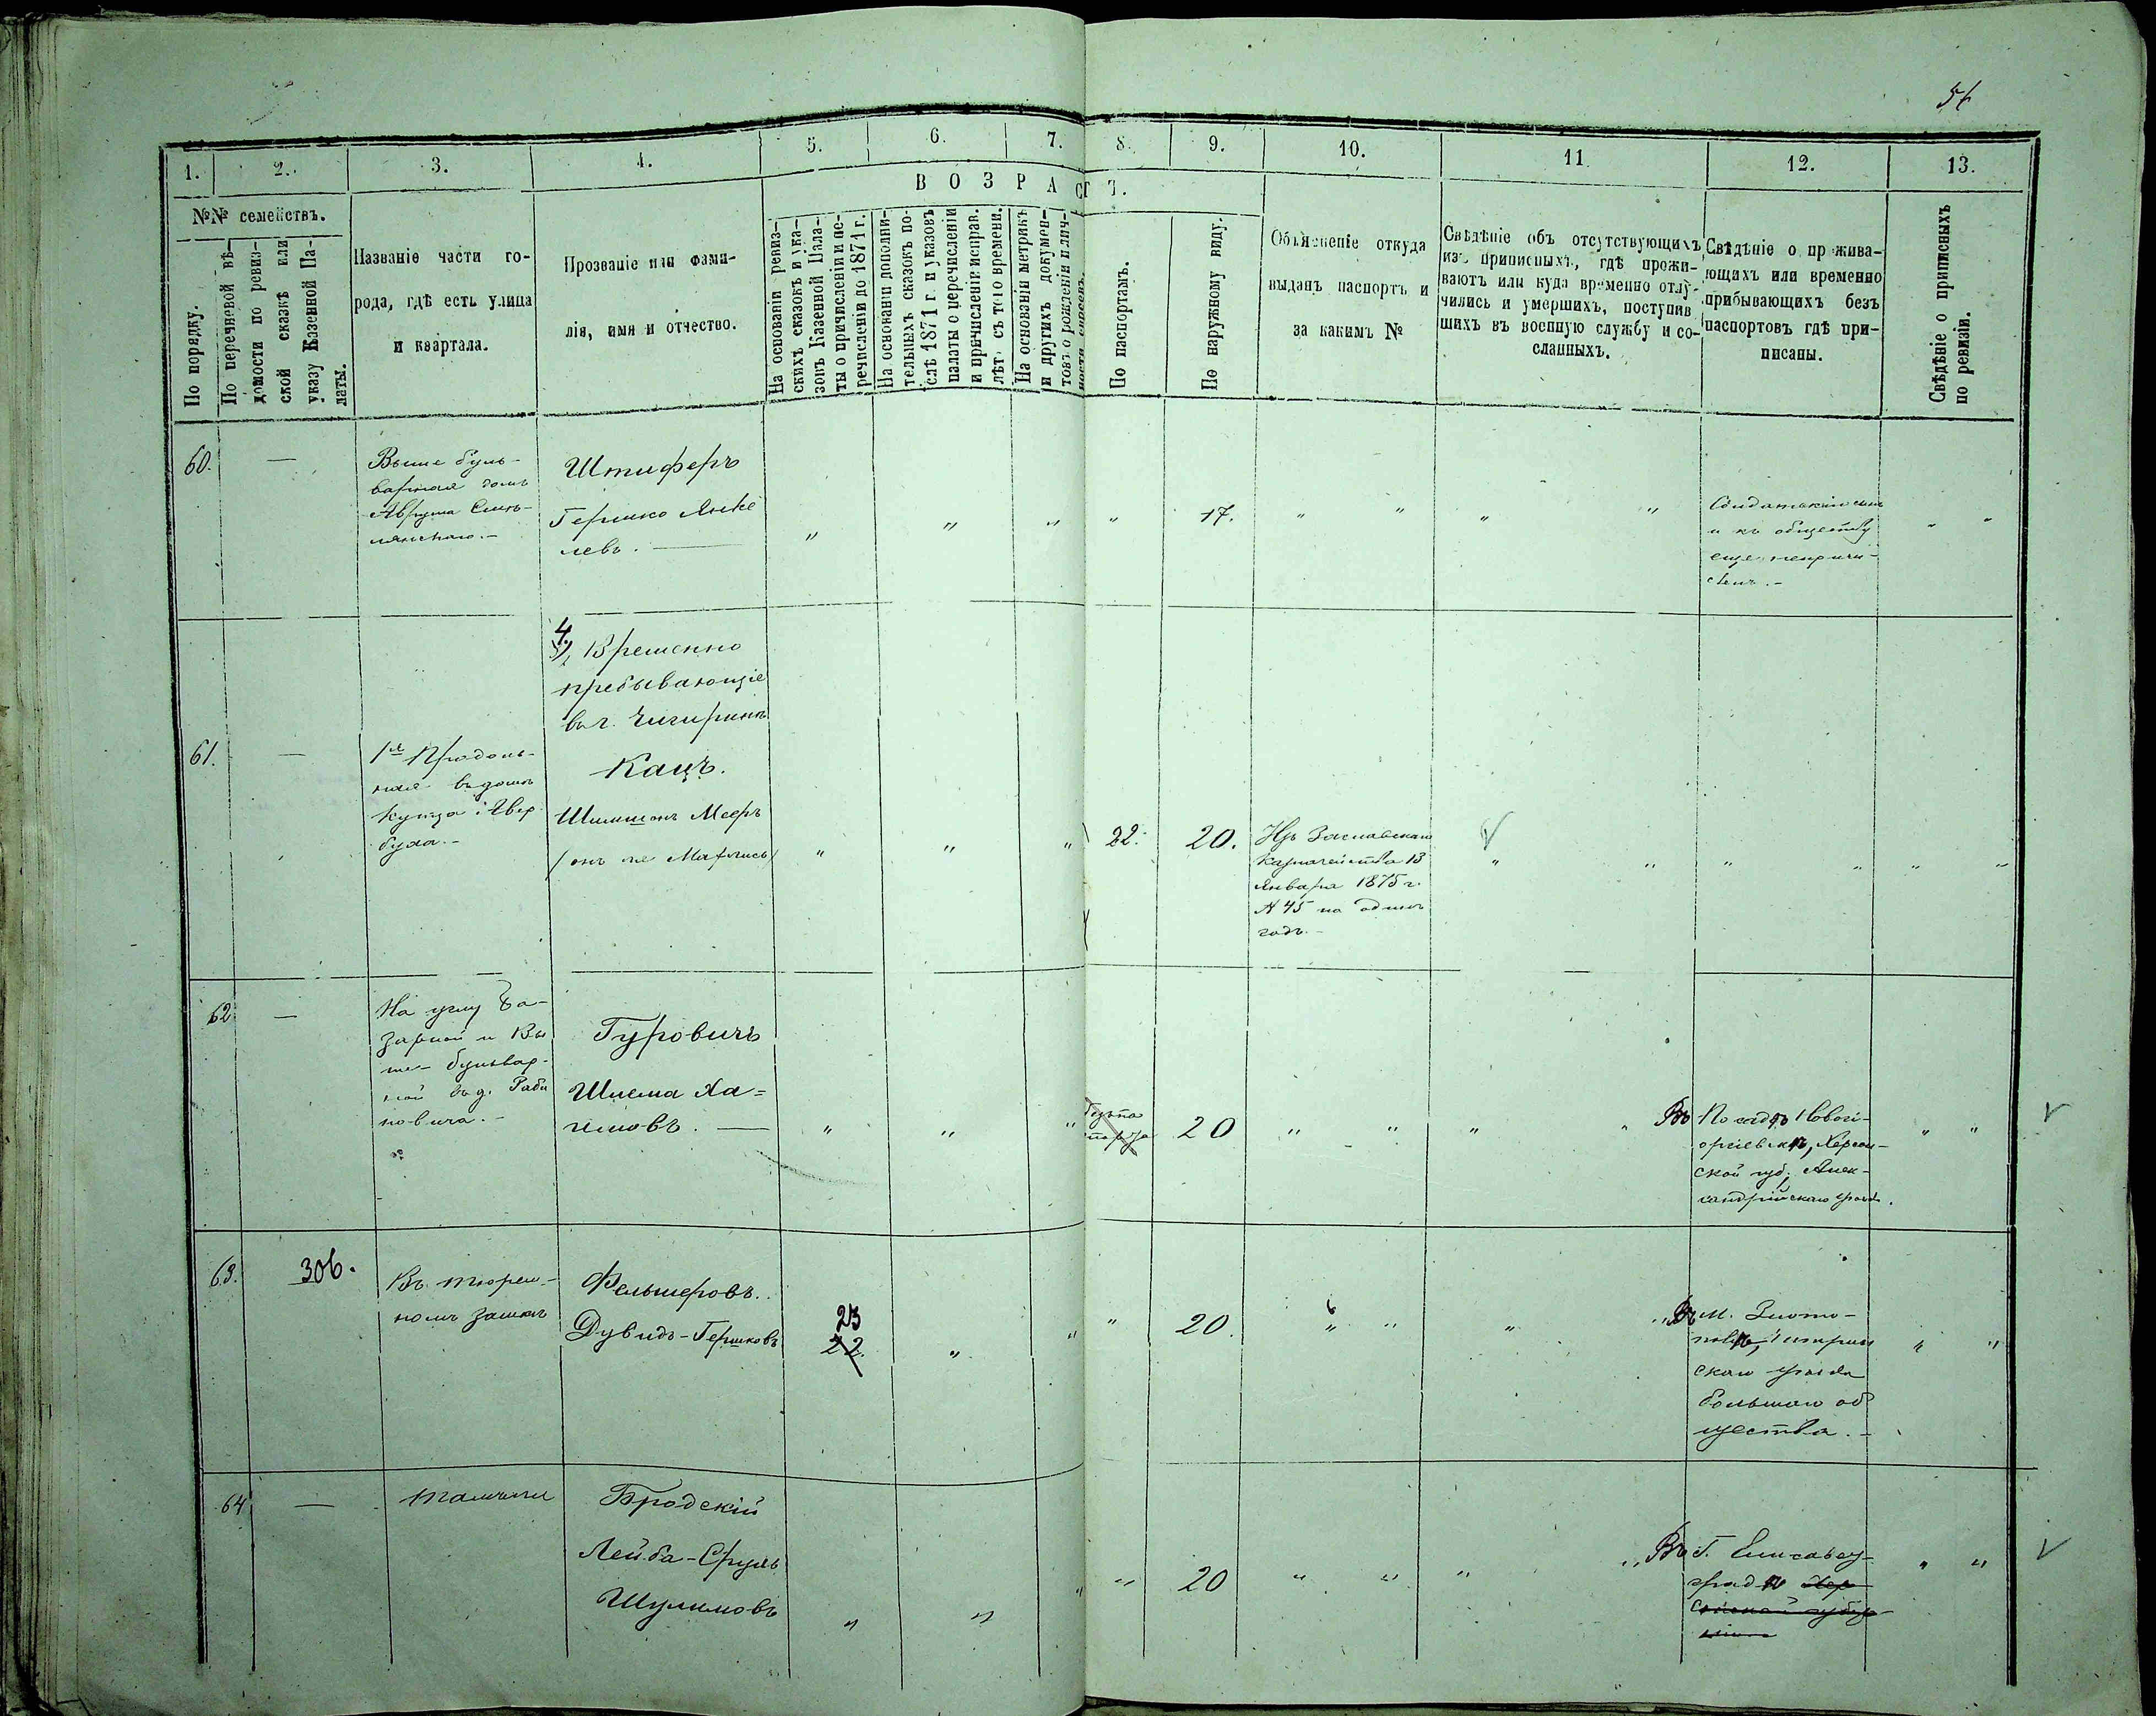 1.
2.
3.
4.
5.
6.
7.
8.
9.
10.
11
12.
13.
В О З Р А СТ Ъ.
№№ семействъ.
По порядку.
По перечневой вѣ-
домости по ревиз-
ской сказкѣ или
указу Казенной Па-
латы.
Названіе части го-
рода, гдѣ есть улица
и квартала.
Прозваніе или фами-
лія, имя и отчество.
На основаніи ревиз-
скихъ сказокъ и ука-
зовъ Казенной Пала-
ты о причисленіи и пе-
речисленіи до 1871 г.
На основаніи дополни-
тельныхъ сказокъ по-
слѣ 1871 г. и указовъ
палаты о перечисленіи
и причисленіи исправ.
лѣтъ съ того времени.
На основаніи метрикъ
и другихъ докумен-
товъ о рожденіи и лич-
ности евреевъ.
По паспортамъ.
По наружному виду.
Объясненіе откуда
выданъ паспортъ и
за какимъ №
Свѣдѣніе объ отсутствующихъ
изъ приписныхъ, гдѣ прожи-
ваютъ или куда временно отлу-
чились и умершихъ, поступив
шихъ въ военную службу и со-
сланныхъ.
Свѣдѣніе о прожива-
ющихъ или временно
прибывающихъ безъ
паспортовъ гдѣ при-
писаны.
Свѣдѣніе о приписныхъ
по ревизіи.
60. —
Выше буль-
варная домъ
Августа
Штиферъ
Гершко Янке
левъ. —
" " " " 17. " " " "
Солдатскій сынъ
и къ обществу
еще непричи-
сленъ. -
" "
4.
Временно
пребывающіе
въ г. Чигиринѣ
61. —
1я Продоль-
ная въ домѣ
купца Авер
буха. -
Кацъ.
Шимшонъ Мееръ
(онъ же
" " " 22. 20.
Изъ Заславскаго
Казначейства 13
Января 1875 г.
№ 45 на одинъ
годъ. -
" " " " " "
62 —
На углу Ба-
зарной и Вы
ше - бульвар-
ной въ д. Раби
новича. -
Гуровичъ
Шлема Ха=
имовъ. —
" " " 20 " " " "
Въ Посадѣ Новоге-
оргіевскѣ, Херсон-
ской губ; Алек-
сандрійскаго уѣзда.
" "
63. 306.
Въ тюрем-
номъ замкѣ
Фельшеровъ.
Дувидъ-Гершковъ
23
22.
" " " 20. " " " "
Въ М. Злото-
полѣ, Чигирин
скаго уѣзда
большаго об
щества. -
" "
64 —
тамъ же
Бродскій
Лейба-Сруль
Шулимовъ
" " " " 20 " " " "
Въ Г. Елисавет-
градѣ Хер
сонской губер-
ніи
" "